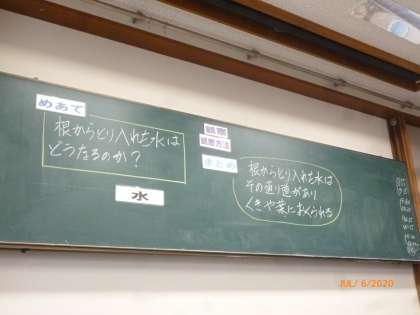 めあて
根からとり入れた水は
どうなるのか?
水
観察
観察方法
まとめ
根からとり入れた水は
その通り道があり
くきや葉におくられる
JUL/ 6/2020